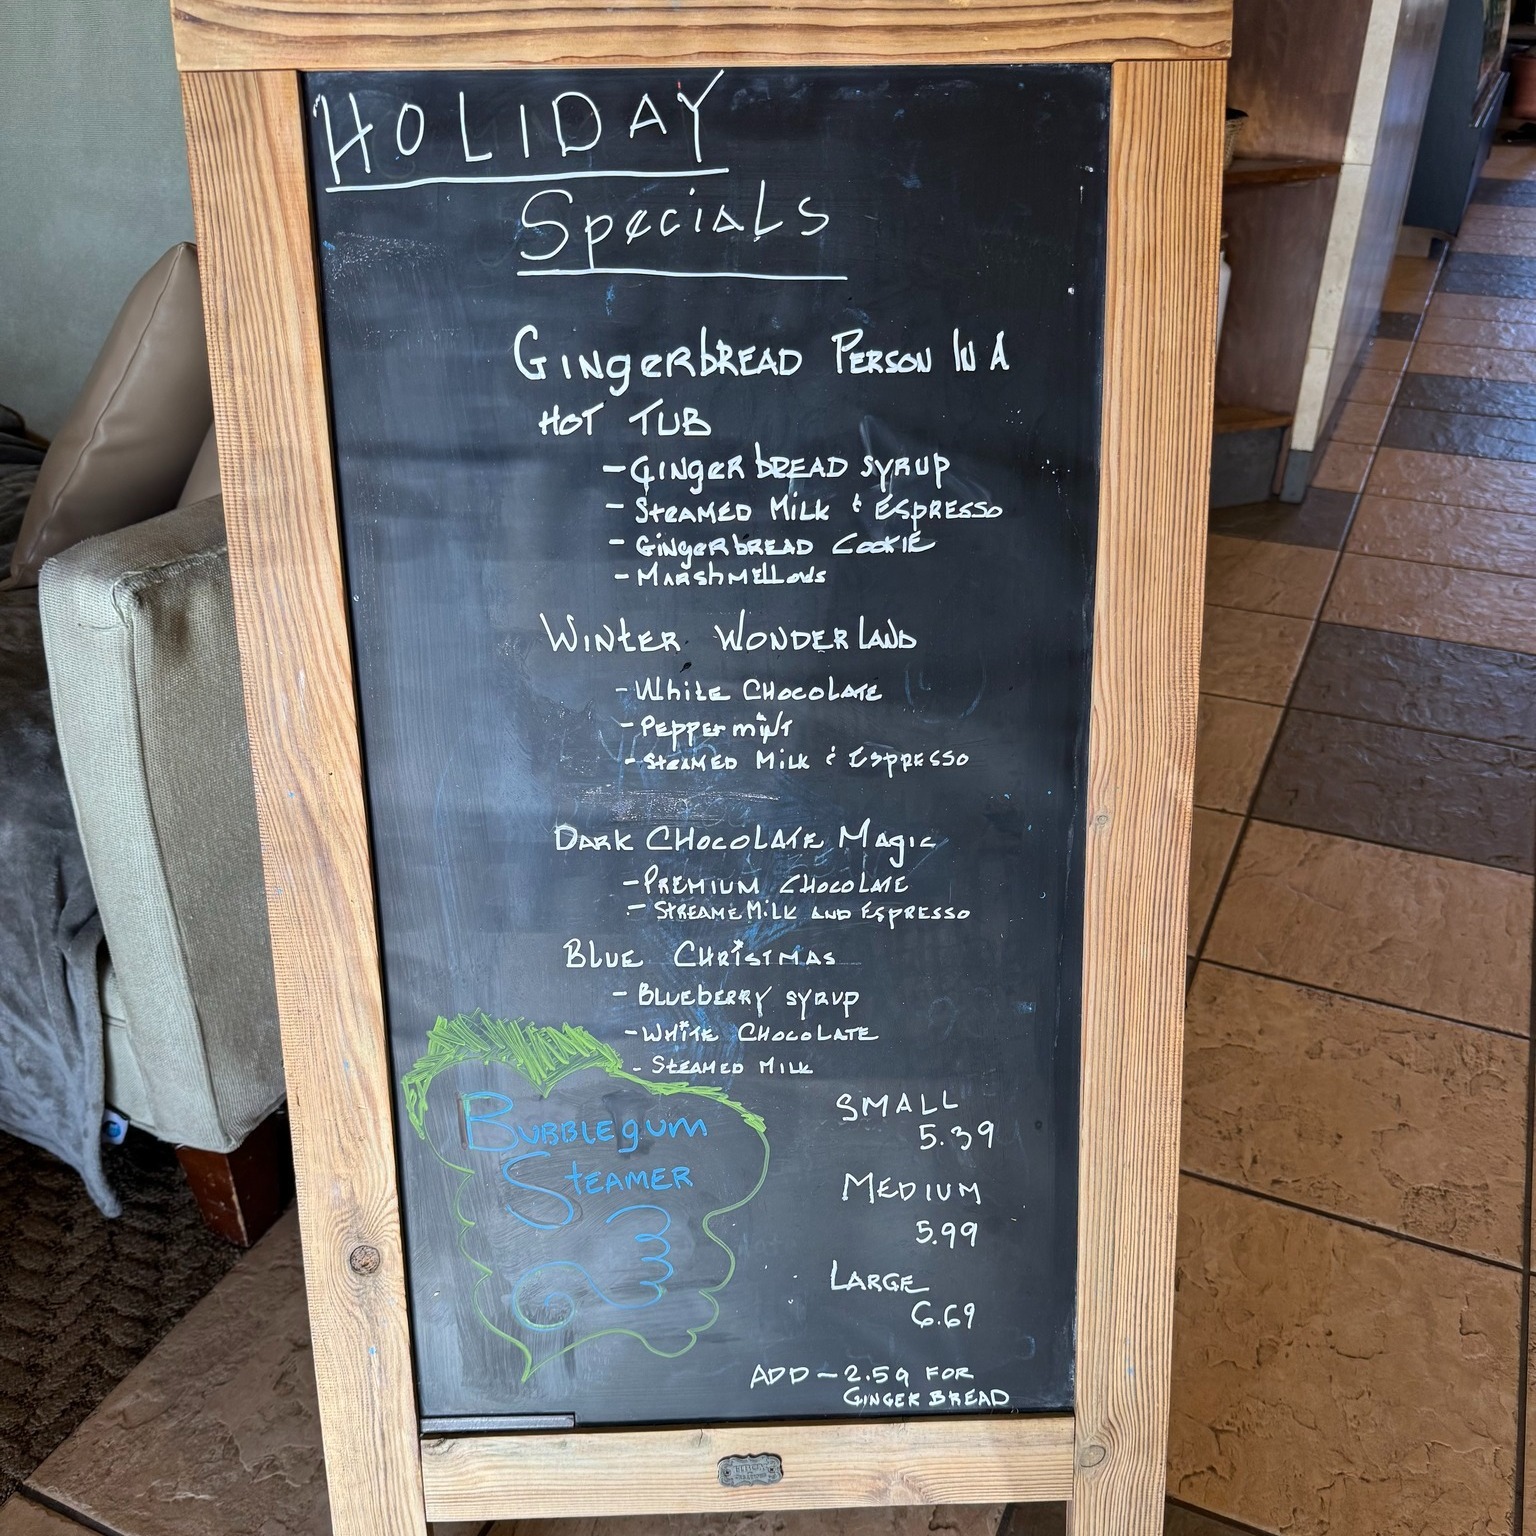 HOLIDAY
Specials
GINgerbREAD PERSON IN A
HOT TUB
- GINgeR bREAD SYRUP
- STEAMED MiLK & ESPRESSO
- GINgeRbREAD COOKIE
- MARShMELLOWS
WINTER WONDERLAND
- White CHOCOLATE
- Peppermint
- STEAMED MiLK & ESPRESSO
DARK CHOCOLATE Magic
- PREMIUM CHOCOLATE
- STREAME MiLK AND ESPRESSO
BLUE CHRiSTMAS
- BLUEBERRY SYRUP
- WHiTE CHOCOLATE
- STEAMED MILK
BUBBLEgUM
STEAMER
SMALL
5.39
MEDIUM
5.99
LARGE
6.69
ADD - 2.59 FOR
GINGER BREAD